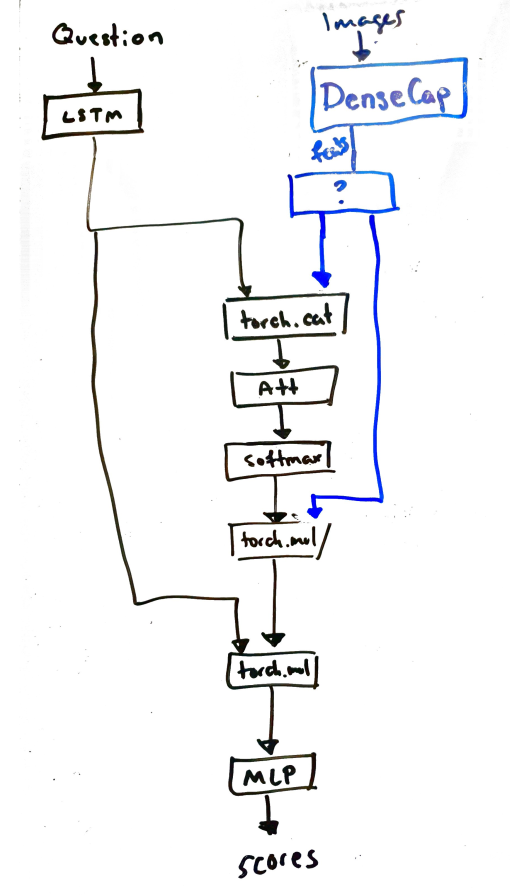 Question
Images
LSTM
DenseCap
feats
?
torch.cat
Att
softmax
torch.mul
torch.mul
MLP
scores